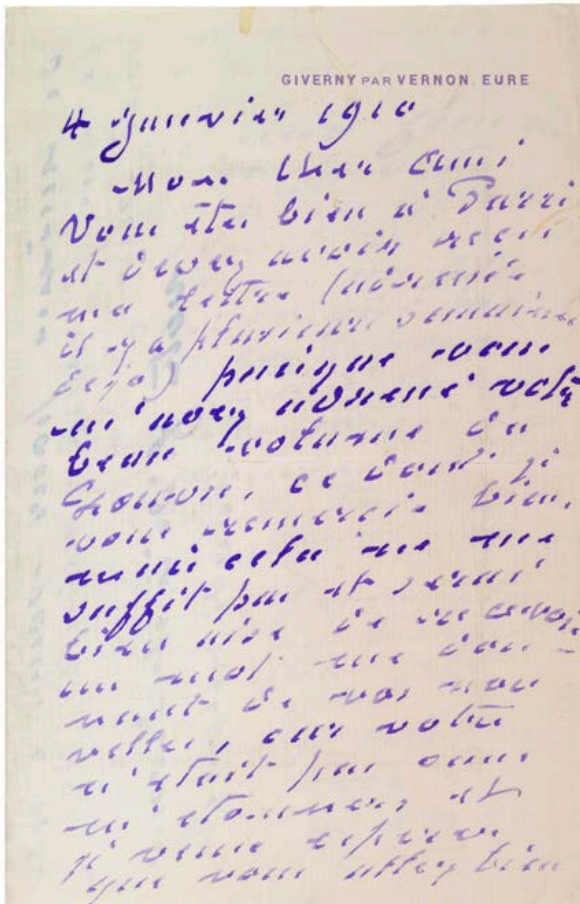 GIVERNY PAR VERNON. EURE
4 Janvier 1910
Mon cher ami
Vous êtes bien à Paris
et devez avoir reçu
ma lettre (adressée
il y a plusieurs semaines
déjà) puisque vous
m'avez adressé votre
beau volume du
Louvre, ce dont je
vous remercie bien,
mais cela ne me
suffit pas et serai
bien aise de recevoir
un mot me don-
nant de vos nou
velles, car votre
n'était pas sans
m'étonner, et
je veux espérer
que vous allez bien